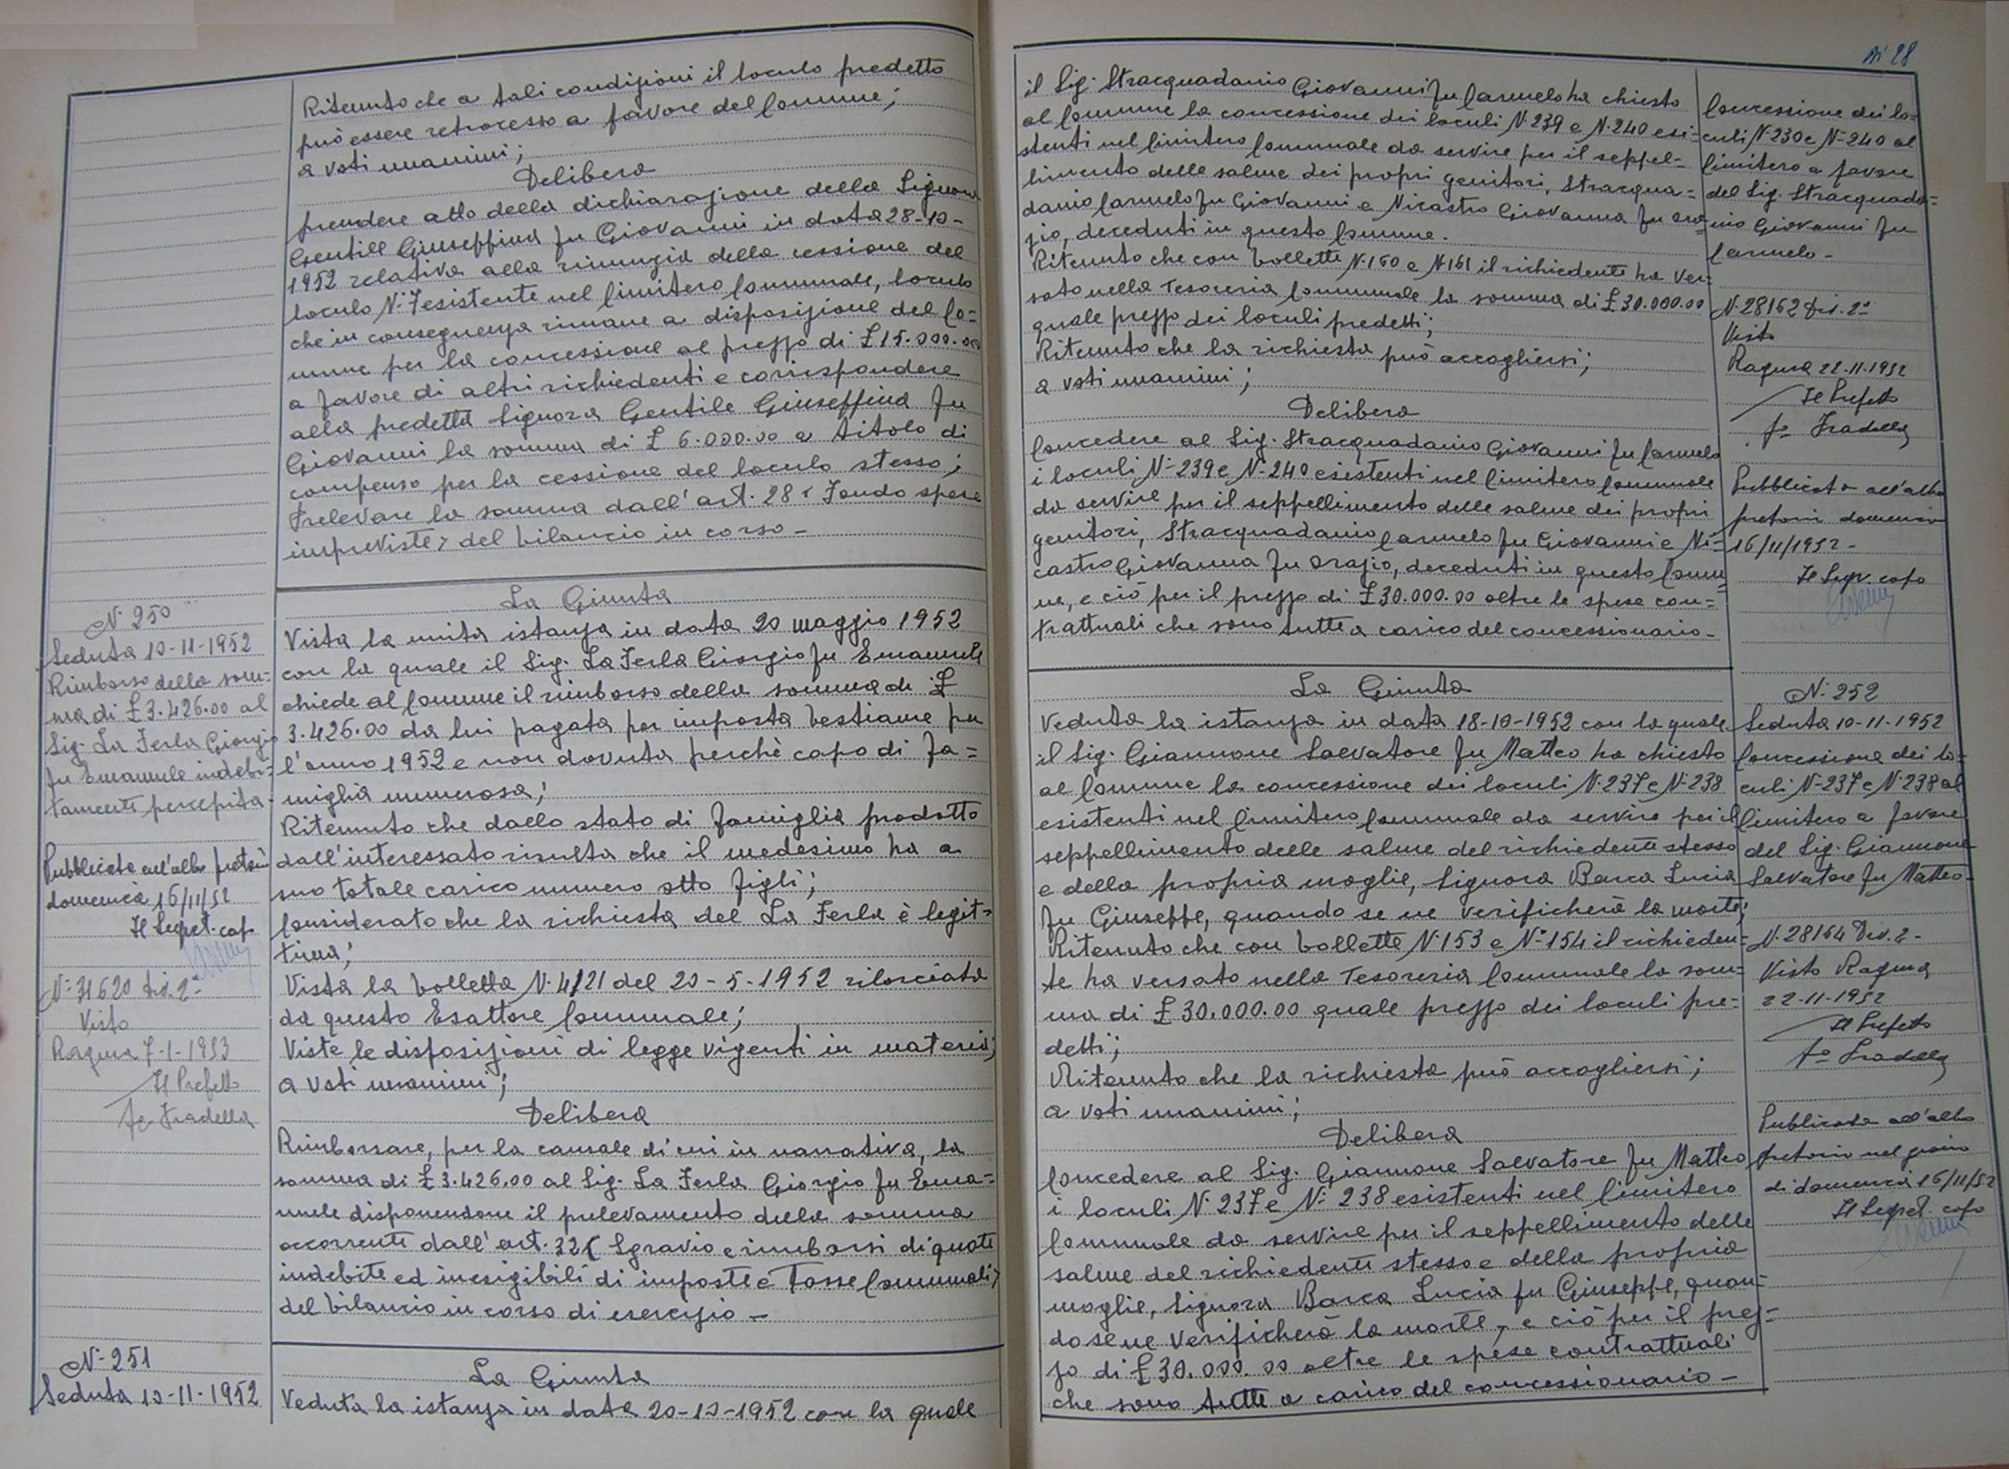 Ritenuto che a tali condizioni il loculo predetto
può essere retrocesso a favore del Comune;
a voti unanimi;
Delibera
prendere atto della dichiarazione della Signora
Gentile Giuseffina fu Giovanni in data 28-10-
1952 relativa alla rinunzia della cessione del
loculo N. 7 esistente nel Cimitero Comunale, loculo
che in conseguenza rimane a disposizione del Co=
mune per la concessione al prezzo di £ 15.000.00
a favore di altri richiedenti e corrispondere
alla predetta Signora Gentile Giuseffina fu
Giovanni la somma di £ 6.000.00 a titolo di
compenso per la cessione del loculo stesso;
Prelevare la somma dall'art. 28 ( Fondo spese
impreviste) del bilancio in corso -
N. 250
Seduta 10-11-1952
Rimborso della som-
ma di £ 3.426.00 al
Sig. La Ferla Giorgio
fu Emanuele indebi-
tamente percepita.
Pubblicata all'albo pretorio
domenica 16/11/52
Il Segret. capo
N. 31620 Div. 2ª
Visto
Ragusa 7-1-1953
Il Prefetto
Fº Fradella
La Giunta
Vista la unita istanza in data 20 maggio 1952
con la quale il Sig. La Ferla Giorgio fu Emanuele
chiede al Comune il rimborso della somma di £
3.426.00 da lui pagata per imposta bestiame per
l'anno 1952 e non dovuta perchè capo di fa=
miglia numerosa;
Ritenuto che dallo stato di famiglia prodotto
dall'interessato risulta che il medesimo ha a
suo totale carico numero otto figli;
Considerato che la richiesta del La Ferla è legit=
tima;
Vista la bolletta N. 4/21 del 20-5-1952 rilasciata
da questo Esattore Comunale;
Viste le disposizioni di legge vigenti in materia;
a voti unanimi;
Delibera
Rimborsare, per la causale di cui in narrativa, la
somma di £ 3.426.00 al Sig. La Ferla Giorgio fu Ema=
nuele disponendone il prelevamento della somma
occorrente dall'art. 32 ( Sgravio e rimborsi di quote
indebite ed inesigibili di imposte e Tasse Comunali)
del bilancio in corso di esercizio -
N. 251
Seduta 10-11-1952
La Giunta
Veduta la istanza in data 20-10-1952 con la quale
N. 28
il Sig. Stracquadanio Giovanni fu Carmelo ha chiesto
al Comune la concessione dei loculi N. 239 e N. 240 esi=
stenti nel Cimitero Comunale da servire per il seppel-
limento delle salme dei propri genitori, Stracqua=
danio Carmelo fu Giovanni e Nicastro Giovanna fu Ora
zio, deceduti in questo Comune.
Ritenuto che con bollette N. 160 e N. 161 il richiedente ha ver-
sato nella Tesoreria Comunale la somma di £ 30.000.00
quale prezzo dei loculi predetti;
Ritenuto che la richiesta può accogliersi;
a voti unanimi;
Delibera
Concedere al Sig. Stracquadanio Giovanni fu Carmelo
i loculi N. 239 e N. 240 esistenti nel Cimitero Comunale
da servire per il seppellimento delle salme dei propri
genitori, Stracquadanio Carmelo fu Giovanni e Ni-
castro Giovanna fu Orazio, deceduti in questo Comu
ne, e ciò per il prezzo di £ 30.000.00 oltre le spese con=
trattuali che sono tutte a carico del concessionario -
Concessione dei lo=
culi N. 230 e N. 240 al
Cimitero a favore
del Sig. Stracquada=
nio Giovanni fu
Carmelo -
N. 28162 Div. 2ª
Visto
Ragusa 22-11-1952
Il Prefetto
Fº Fradella
Pubblicata all'albo
pretorio domenica
16/11/1952 -
Il Segr. capo
La Giunta
Veduta la istanza in data 18-10-1952 con la quale
il Sig. Giannone Salvatore fu Matteo ha chiesto
al Comune la concessione dei loculi N. 237 e N. 238
esistenti nel Cimitero Comunale da servire per il
seppellimento delle salme del richiedente stesso
e della propria moglie, Signora Barca Lucia
fu Giuseppe, quando se ne verificherà la morte;
Ritenuto che con bollette N. 153 e N. 154 il richieden-
te ha versato nella Tesoreria Comunale la som=
ma di £ 30.000.00 quale prezzo dei loculi pre=
detti;
Ritenuto che la richiesta può accogliersi;
a voti unanimi;
Delibera
Concedere al Sig. Giannone Salvatore fu Matteo
i loculi N. 237 e N. 238 esistenti nel Cimitero
Comunale da servire per il seppellimento delle
salme del richiedente stesso e della propria
moglie, Signora Barca Lucia fu Giuseppe, quan-
do se ne verificherà la morte, e ciò per il prez=
zo di £ 30.000.00 oltre le spese contrattuali
che sono tutte a carico del concessionario -
N. 252
Seduta 10-11-1952
Concessione dei lo=
culi N. 237 e N. 238 al
Cimitero a favore
del Sig. Giannone
Salvatore fu Matteo -
N. 28164 Div. 2-
Visto Ragusa
22-11-1952
Il Prefetto
Fº Fradella
Pubblicata all'albo
pretorio nel giorno
di domenica 16/11/52
Il Segret. capo